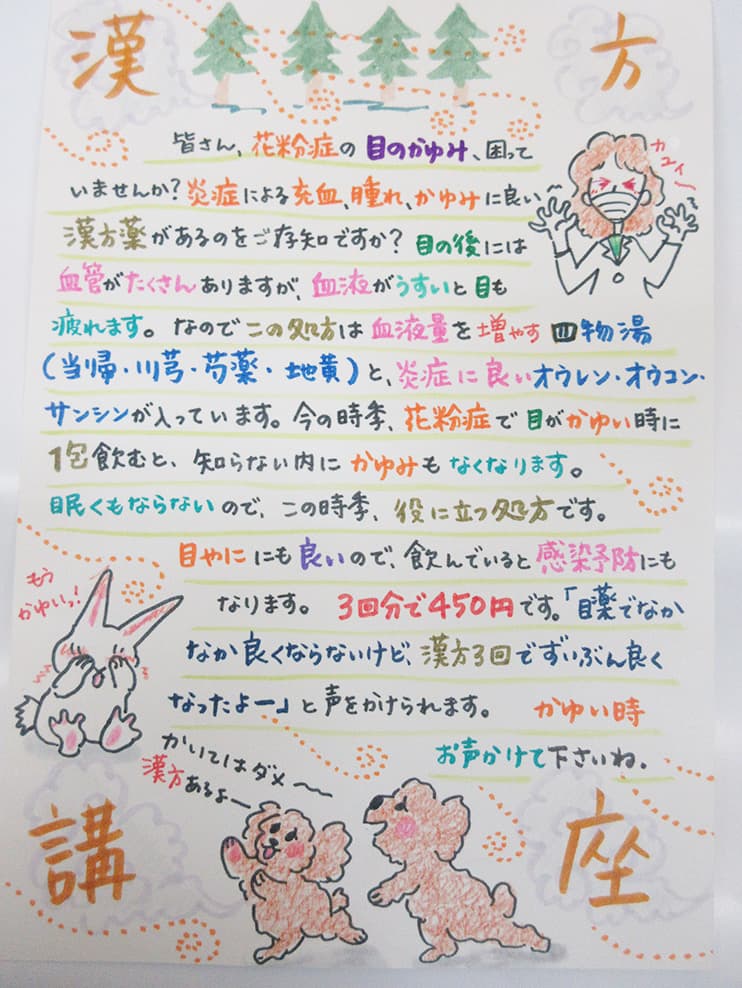 漢方
皆さん、花粉症の目のかゆみ、困って
いませんか?炎症による充血、腫れ、かゆみに良い
漢方薬があるのをご存知ですか?目の後には
血管がたくさんありますが、血液がうすいと目も
疲れます。なのでこの処方は血液量を増やす四物湯
(当帰・川芎・芍薬・地黄)と、炎症に良いオウレン・オウコン・
サンシンが入っています。今の時季、花粉症で目がかゆい時に
1包飲むと、知らない内にかゆみもなくなります。
眠くもならないので、この時季、役に立つ処方です。
目やににも良いので、飲んでいると感染予防にも
なります。3回分で450円です。「目薬でなか
なか良くならないけど、漢方3回でずいぶん良く
なったよー」と声をかけられます。かゆい時
お声かけて下さいね.
カユイ〜
もう
かゆいっ!
かいてはダメ〜
漢方あるよー
講座